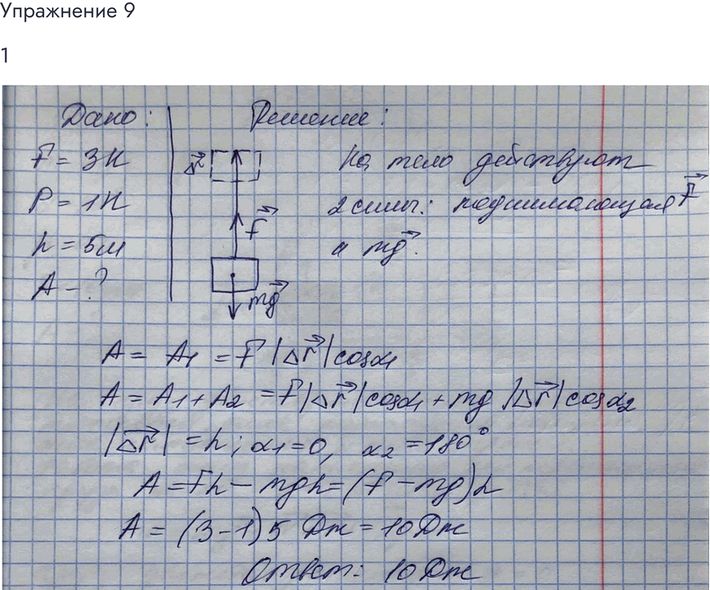 Упражнение 9
1
Дано:
Решение:
F = 3Н
P = 1Н
h = 5м
A – ?
Δr
F
mg
На тело действуют
2 силы: поднимающая F
и mg.
A = A1 = F |Δr| cosα1
A = A1 + A2 = F|Δr| cosα1 + mg |Δr| cosα2
|Δr| = h; α1 = 0, α2 = 180°
A = Fh – mgh = (F – mg)h
A = (3 – 1) 5 Дж = 10 Дж
Ответ: 10 Дж